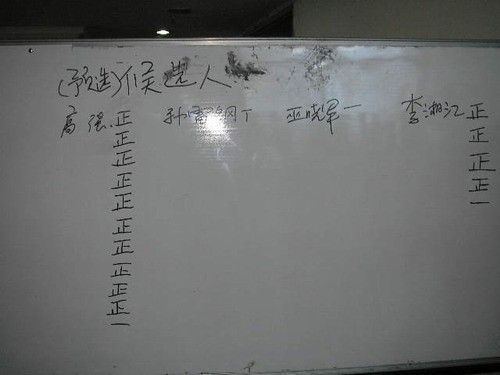 (预选)候选人
高强 正 孙 钢 丅 晓军 一 李湘江 正
正 正
正 正
正 正
正 一
正
正
正
正
正
一